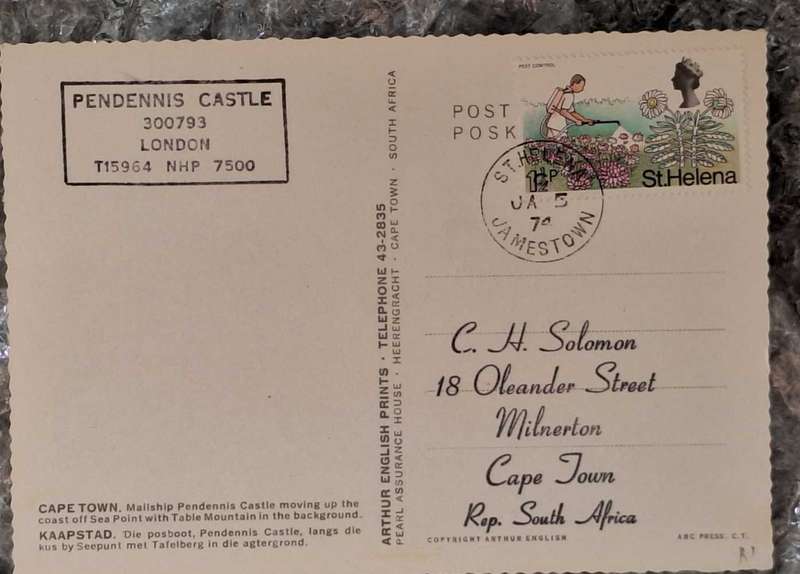 PENDENNIS CASTLE
300793
LONDON
T15964 NHP 7500
CAPE TOWN. Mailship Pendennis Castle moving up the
coast off Sea Point with Table Mountain in the background.
KAAPSTAD. Die posboot, Pendennis Castle, langs die
kus by Seepunt met Tafelberg in die agtergrond.
ARTHUR ENGLISH PRINTS · TELEPHONE 43-2835
PEARL ASSURANCE HOUSE · HEERENGRACHT · CAPE TOWN · SOUTH AFRICA
POST
POSK
PEST CONTROL
1½P
St.Helena
ST.HELENA
JA 5
74
JAMESTOWN
C. H. Solomon
18 Oleander Street
Milnerton
Cape Town
Rep. South Africa
COPYRIGHT ARTHUR ENGLISH
ABC PRESS. C.T.
R1